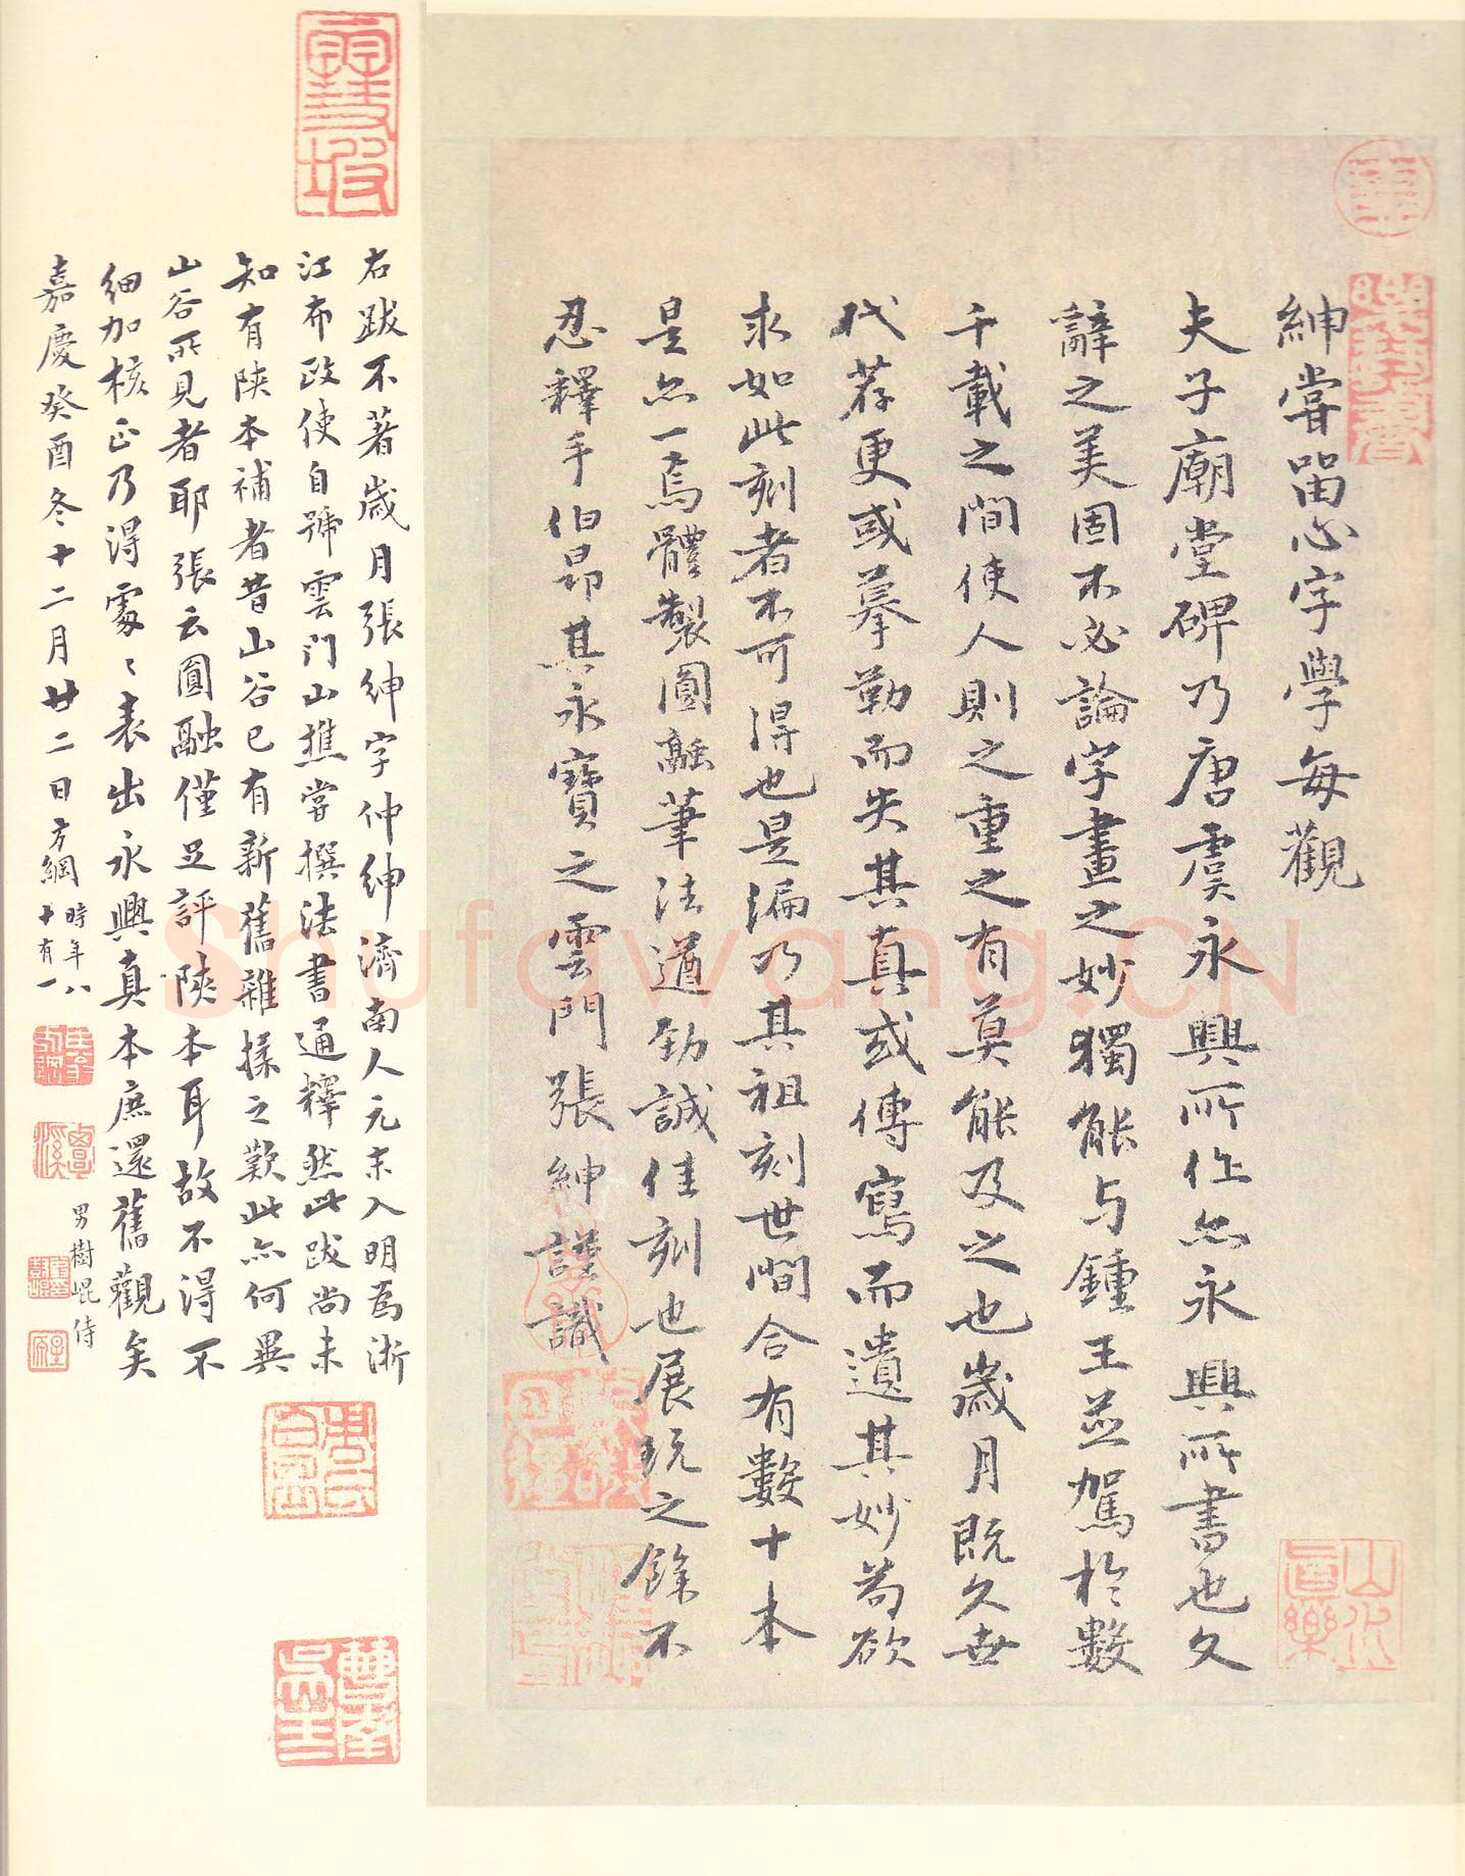 紳嘗留心字學每觀
夫子廟堂碑乃唐虞永興所作亦永興所書也文
辭之美固不必論字畫之妙獨能与鍾王並駕於數
千載之間使人則之重之有莫能及之也歲月既久世
代荐更或摹勒而失其真或傳寫而遺其妙苟欲
求如此刻者不可得也是編乃其祖刻世間合有數十本
是亦一焉體製圓融筆法遒勁誠佳刻也展玩之餘不
忍釋手伯昂其永寶之雲門張紳謹識
右跋不著歲月張紳字仲紳濟南人元末入明為浙
江布政使自號雲門山樵嘗撰法書通釋然此跋尚未
知有陝本補者昔山谷已有新舊雜揉之歎此亦何異
山谷所見者耶張云圓融僅足評陝本耳故不得不
細加核正乃得處〻表出永興真本庶還舊觀矣
嘉慶癸酉冬十二月廿二日方綱時年八
十有一
男樹崐侍
雪坡
山水
真樂
曹南
吳主
覃
溪
Shufawang.CN